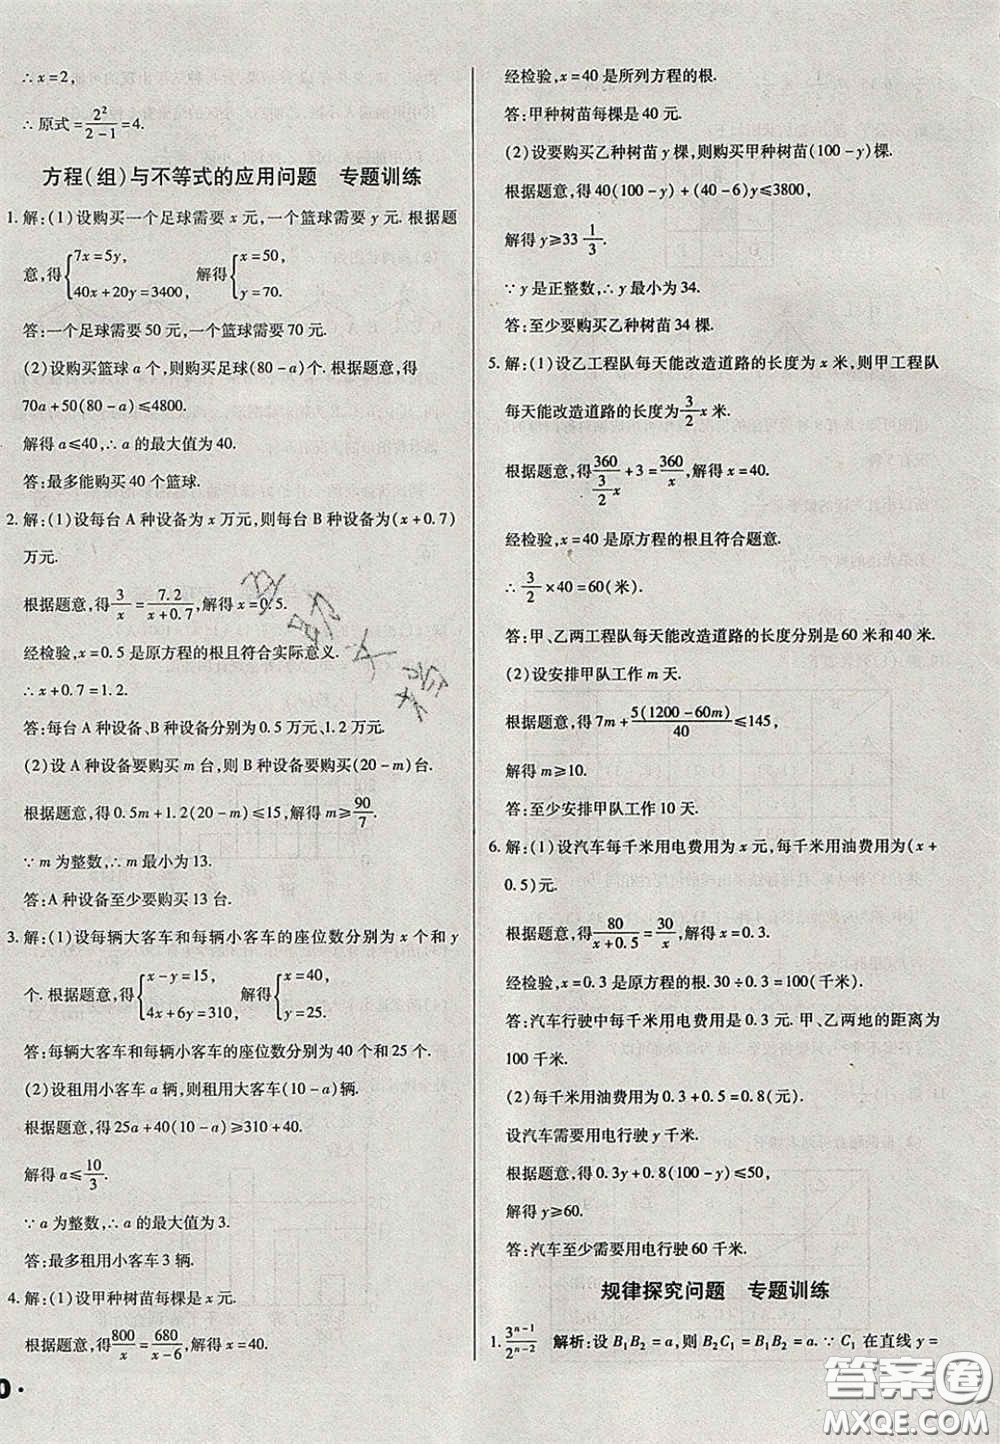 ∴x=2,
∴原式=2²/(2-1)=4.
方程(组)与不等式的应用问题 专题训练
1.解:(1)设购买一个足球需要x元,一个篮球需要y元.根据题
意,得{7x=5y, 40x+20y=3400, 解得{x=50, y=70.
答:一个足球需要50元,一个篮球需要70元.
(2)设购买篮球a个,则购买足球(80-a)个.根据题意,得
70a+50(80-a)≤4800.
解得a≤40,∴a的最大值为40.
答:最多能购买40个篮球.
2.解:(1)设每台A种设备为x万元,则每台B种设备为(x+0.7)
万元.
根据题意,得3/x=7.2/(x+0.7),解得x=0.5.
经检验,x=0.5是原方程的根且符合实际意义.
∴x+0.7=1.2.
答:每台A种设备、B种设备分别为0.5万元、1.2万元.
(2)设A种设备要购买m台,则B种设备要购买(20-m)台.
根据题意,得0.5m+1.2(20-m)≤15,解得m≥90/7.
∵m为整数,∴m最小为13.
答:A种设备至少要购买13台.
3.解:(1)设每辆大客车和每辆小客车的座位数分别为x个和y
个.根据题意,得{x-y=15, 4x+6y=310, 解得{x=40, y=25.
答:每辆大客车和每辆小客车的座位数分别为40个和25个.
(2)设租用小客车a辆,则租用大客车(10-a)辆.
根据题意,得25a+40(10-a)≥310+40.
解得a≤10/3.
∵a为整数,∴a的最大值为3.
答:最多租用小客车3辆.
4.解:(1)设甲种树苗每棵是x元.
根据题意,得800/x=680/(x-6).解得x=40.
0·
经检验,x=40是所列方程的根.
答:甲种树苗每棵是40元.
(2)设要购买乙种树苗y棵,则购买甲种树苗(100-y)棵.
根据题意,得40(100-y)+(40-6)y≤3800,
解得y≥33 1/3.
∵y是正整数,∴y最小为34.
答:至少要购买乙种树苗34棵.
5.解:(1)设乙工程队每天能改造道路的长度为x米,则甲工程队
每天能改造道路的长度为3/2x米.
根据题意,得360/(3/2x)+3=360/x,解得x=40.
经检验,x=40是原方程的根且符合题意.
∴3/2×40=60(米).
答:甲、乙两工程队每天能改造道路的长度分别是60米和40米.
(2)设安排甲队工作m天.
根据题意,得7m+5(1200-60m)/40≤145,
解得m≥10.
答:至少安排甲队工作10天.
6.解:(1)设汽车每千米用电费用为x元,每千米用油费用为(x+
0.5)元.
根据题意,得80/(x+0.5)=30/x,解得x=0.3.
经检验,x=0.3是原方程的根.30÷0.3=100(千米).
答:汽车行驶中每千米用电费用是0.3元.甲、乙两地的距离为
100千米.
(2)每千米用油费用为0.3+0.5=0.8(元).
设汽车需要用电行驶y千米.
根据题意,得0.3y+0.8(100-y)≤50,
解得y≥60.
答:汽车至少需要用电行驶60千米.
规律探究问题 专题训练
1.3ⁿ⁻¹/2ⁿ⁻² 解析:设B₁B₂=a,则B₂C₁=B₁B₂=a.∵C₁在直线y=
答案圈
MXQE.COM